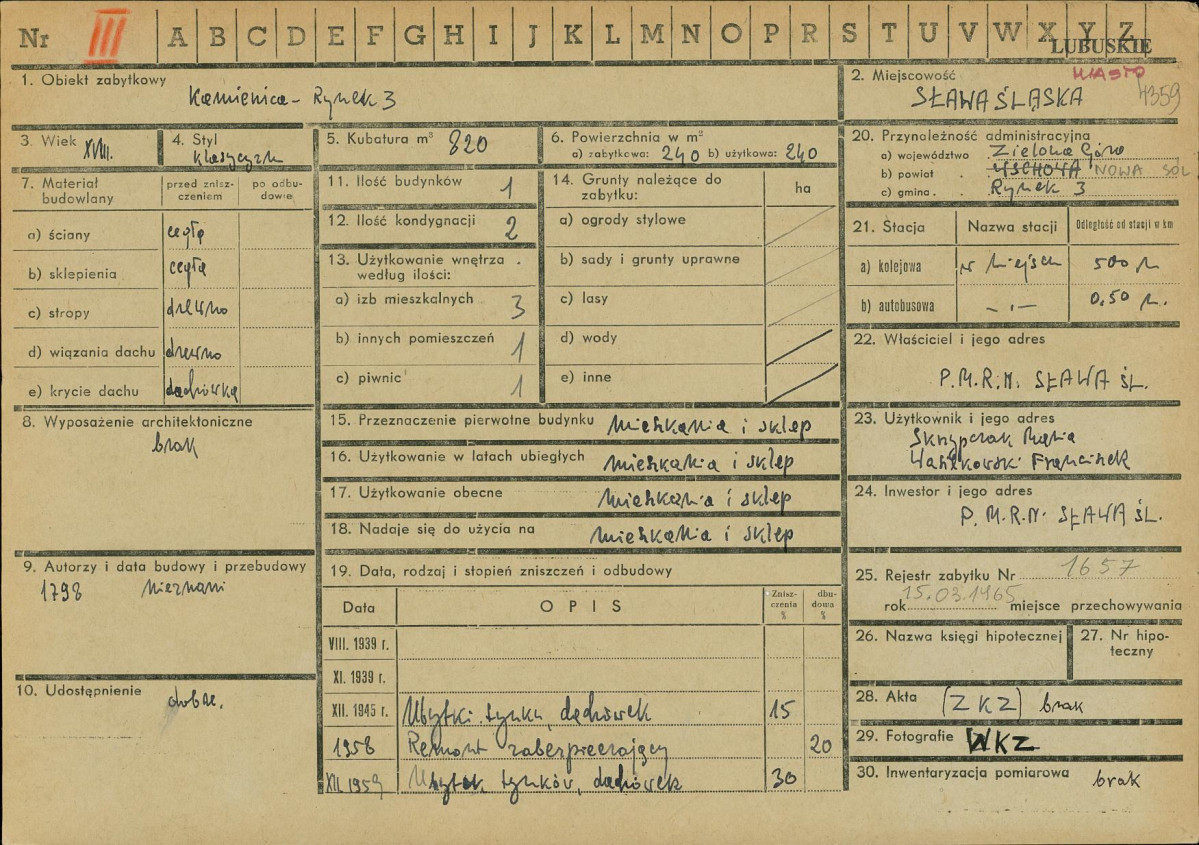 Nr III A B C D E F G H I J K L M N O P R S T U V W X Y Z
LUBUSKIE
1. Obiekt zabytkowy
Kamienica - Rynek 3
2. Miejscowość MIASTO
SŁAWA ŚLĄSKA 4359
3. Wiek XVIII.
4. Styl
klasycyzm
5. Kubatura m³ 820
6. Powierzchnia w m²
a) zabytkowa: 240 b) użytkowa: 240
20. Przynależność administracyjna
a) województwo Zielona Góra
b) powiat . WSCHOWA NOWA SÓL
c) gmina . . Rynek 3
7. Materiał budowlany
przed znisz-
czeniem
po odbu-
dowie
a) ściany cegła
b) sklepienia cegła
c) stropy drewno
d) wiązania dachu drewno
e) krycie dachu dachówka
8. Wyposażenie architektoniczne
brak
9. Autorzy i data budowy i przebudowy
1798 nieznani
10. Udostępnienie dobre.
11. Ilość budynków 1
12. Ilość kondygnacji 2
13. Użytkowanie wnętrza
według ilości:
a) izb mieszkalnych 3
b) innych pomieszczeń 1
c) piwnic 1
14. Grunty należące do
zabytku:
ha
a) ogrody stylowe
b) sady i grunty uprawne
c) lasy
d) wody
e) inne
15. Przeznaczenie pierwotne budynku mieszkania i sklep
16. Użytkowanie w latach ubiegłych mieszkania i sklep
17. Użytkowanie obecne mieszkania i sklep
18. Nadaje się do użycia na mieszkania i sklep
19. Data, rodzaj i stopień zniszczeń i odbudowy
Data OPIS
Znisz-
czenia
%
dbu-
dowa
%
VIII. 1939 r.
XI. 1939 r.
XII. 1945 r. Ubytki tynku, dachówek 15
1958 Remont zabezpieczający 20
XII. 1959 Ubytek tynków, dachówek 30
21. Stacja Nazwa stacji Odległość od stacji w km
a) kolejowa w miejscu 500 m
b) autobusowa - . - 0,50 m.
22. Właściciel i jego adres
P.M.R.N. SŁAWA ŚL.
23. Użytkownik i jego adres
Skrzypczak Maria
Waszkowski Franciszek
24. Inwestor i jego adres
P.M.R.N. SŁAWA ŚL.
25. Rejestr zabytku Nr 1657
rok 15.03.1965 miejsce przechowywania
26. Nazwa księgi hipotecznej
27. Nr hipo-
teczny
28. Akta (ZKZ) brak
29. Fotografie WKZ
30. Inwentaryzacja pomiarowa brak